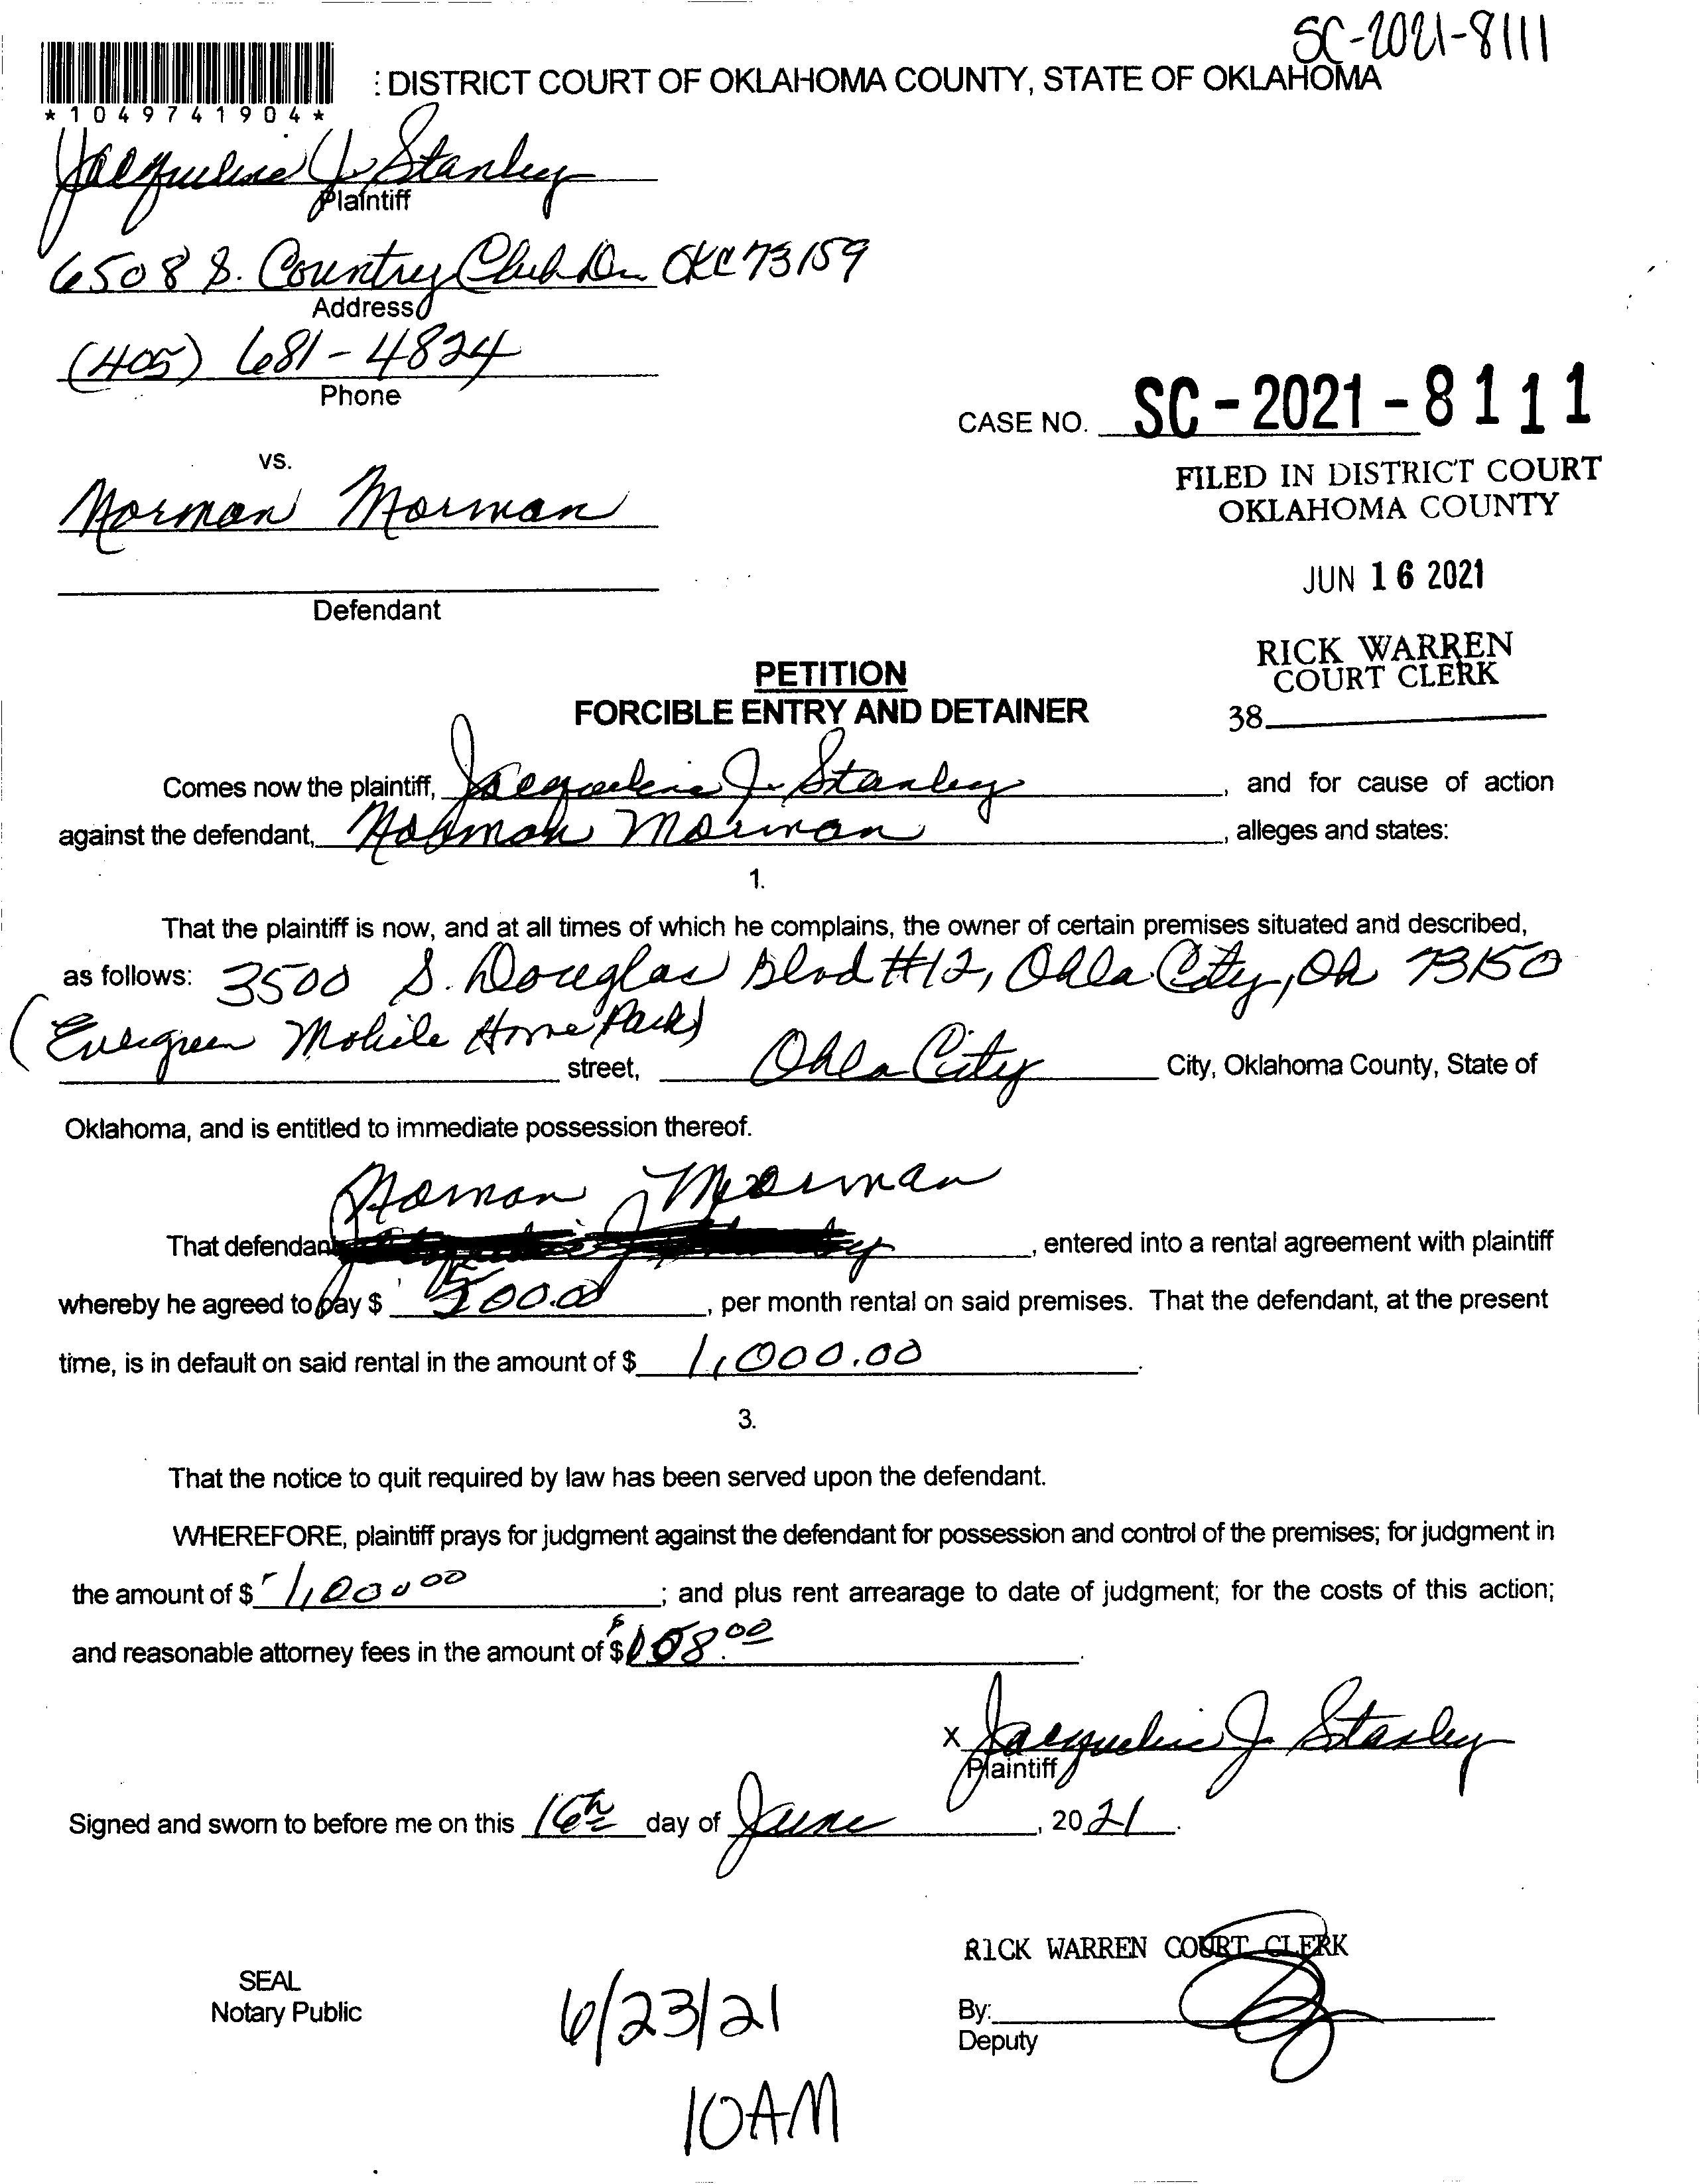 SC-2021-8111
: DISTRICT COURT OF OKLAHOMA COUNTY, STATE OF OKLAHOMA
*1049741904*
Jacqueline J. Stanley
Plaintiff
6508 S. Country Club Dr. OKC 73159
Address
(405) 681-4824
Phone
CASE NO. SC-2021-8111
vs.
FILED IN DISTRICT COURT
OKLAHOMA COUNTY
Norman Morman
JUN 16 2021
Defendant
RICK WARREN
COURT CLERK
38
PETITION
FORCIBLE ENTRY AND DETAINER
Comes now the plaintiff, Jacqueline J. Stanley, and for cause of action
against the defendant, Norman Morman, alleges and states:
1.
That the plaintiff is now, and at all times of which he complains, the owner of certain premises situated and described,
as follows: 3500 S. Douglas Blvd #12, Okla City, Ok 73150
(Evergreen Mobile Home Park)
street, Okla City City, Oklahoma County, State of
Oklahoma, and is entitled to immediate possession thereof.
Norman Morman
That defendant, entered into a rental agreement with plaintiff
whereby he agreed to pay $ 500.00, per month rental on said premises. That the defendant, at the present
time, is in default on said rental in the amount of $ 1,000.00.
3.
That the notice to quit required by law has been served upon the defendant.
WHEREFORE, plaintiff prays for judgment against the defendant for possession and control of the premises; for judgment in
the amount of $ 1,000 00; and plus rent arrearage to date of judgment; for the costs of this action;
and reasonable attorney fees in the amount of $ 108.00.
X Jacqueline J. Stanley
Plaintiff
Signed and sworn to before me on this 16th day of June, 2021.
RICK WARREN COURT CLERK
SEAL
Notary Public
6/23/21
By:
Deputy
10AM